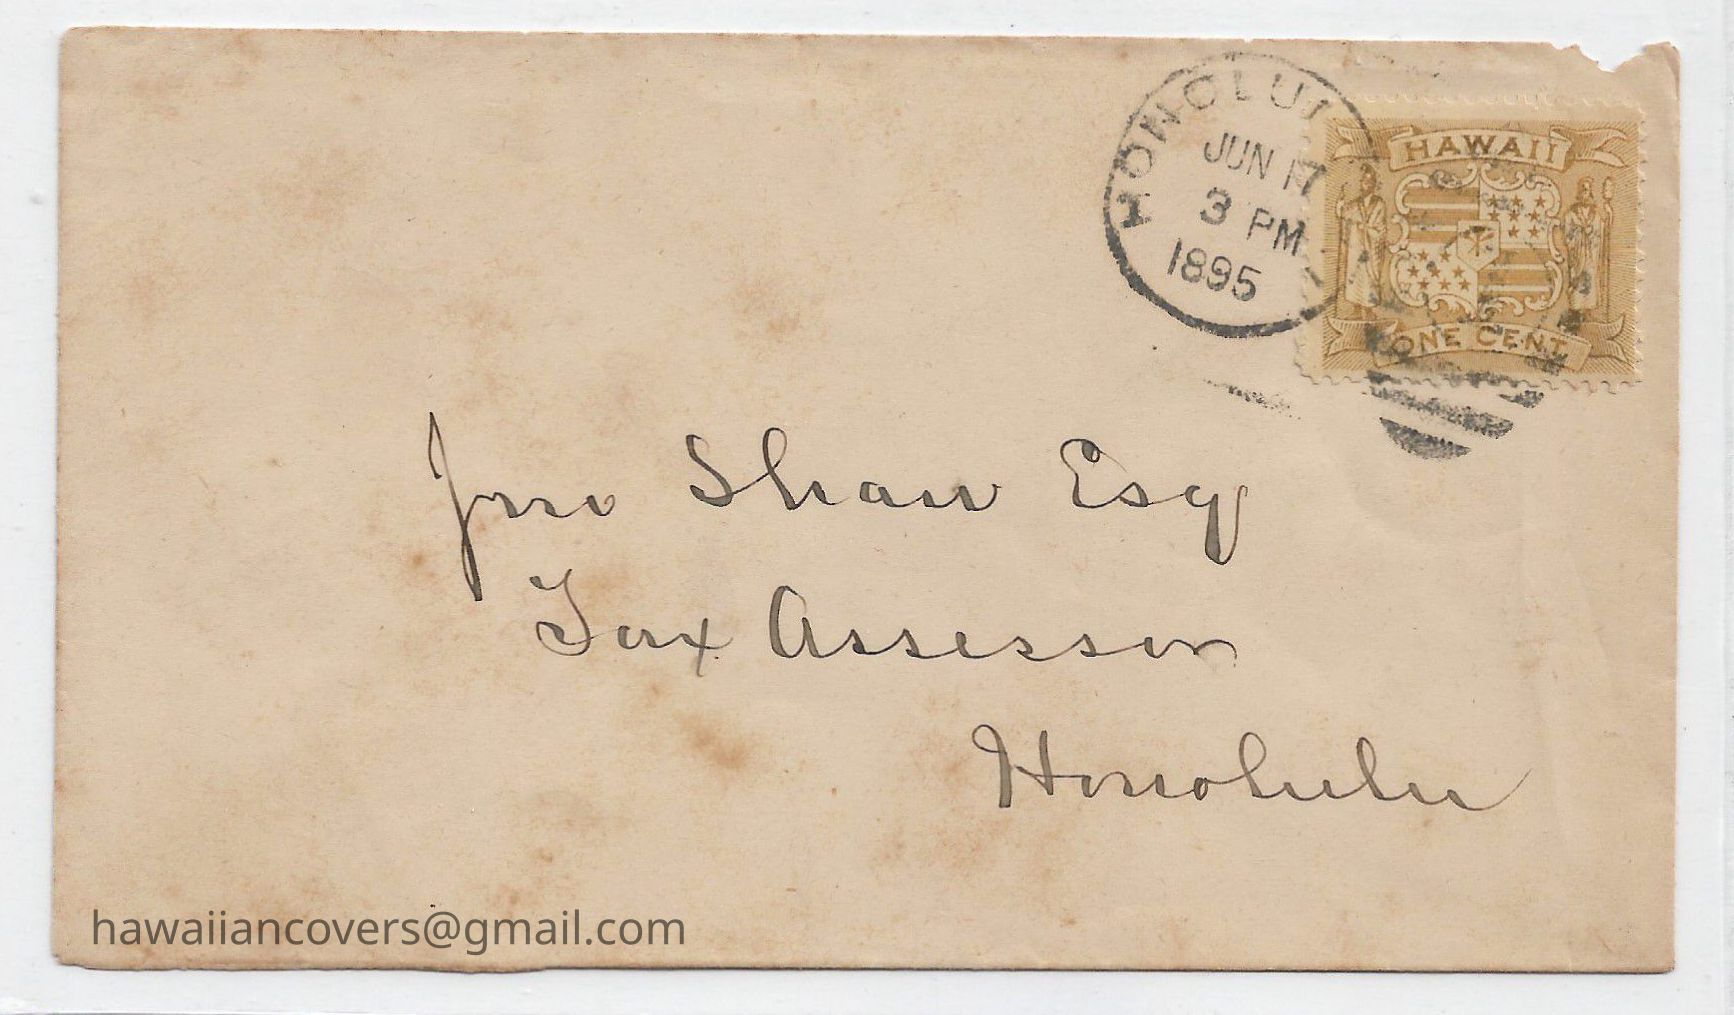 HONOLUL
JUN 17
3 PM
1895
HAWAII
ONE CENT
Jno Shaw Esq
Tax Assessor
Honolulu
hawaiiancovers@gmail.com